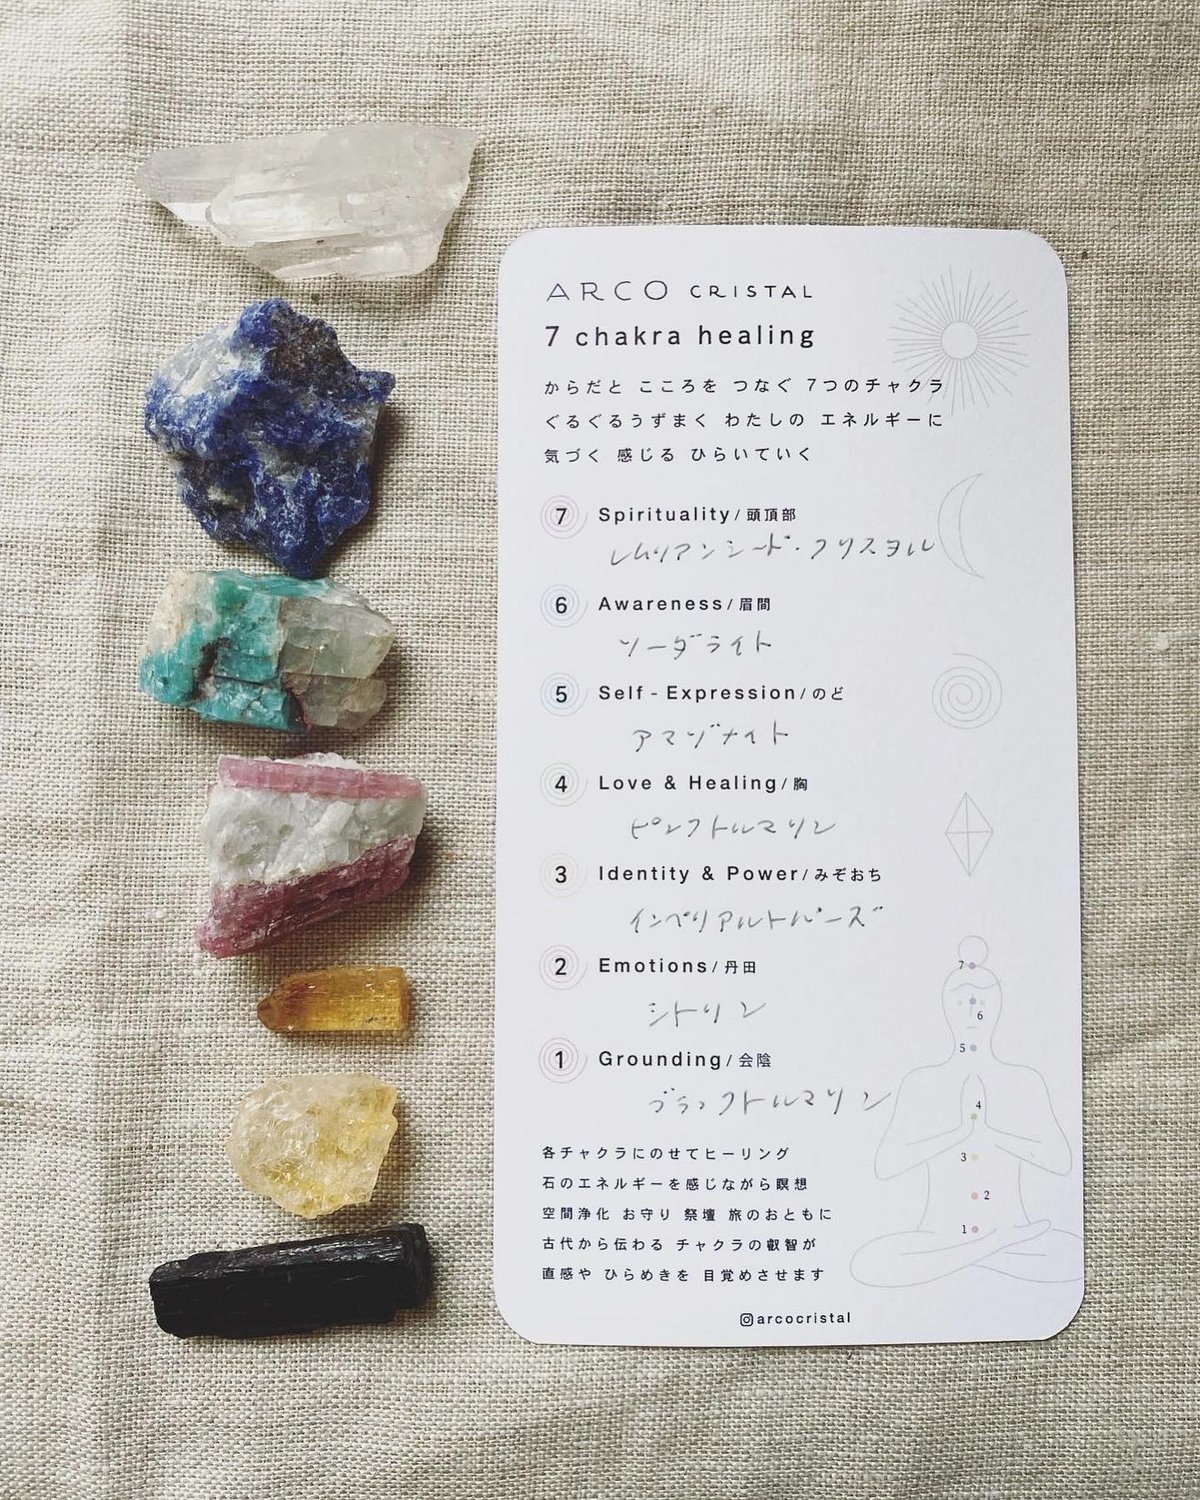 ARCO CRISTAL
7 chakra healing
からだと こころを つなぐ 7つのチャクラ
ぐるぐるうずまく わたしの エネルギーに
気づく 感じる ひらいていく
7 Spirituality/頭頂部
レムリアンシード・クリスタル
6 Awareness/眉間
ソーダライト
5 Self - Expression/のど
アマゾナイト
4 Love & Healing/胸
ピンクトルマリン
3 Identity & Power/みぞおち
インペリアルトパーズ
2 Emotions/丹田
シトリン
1 Grounding/会陰
ブラックトルマリン
各チャクラにのせてヒーリング
石のエネルギーを感じながら瞑想
空間浄化 お守り 祭壇 旅のおともに
古代から伝わる チャクラの叡智が
直感や ひらめきを 目覚めさせます
arcocristal
7
6
5
4
3
2
1